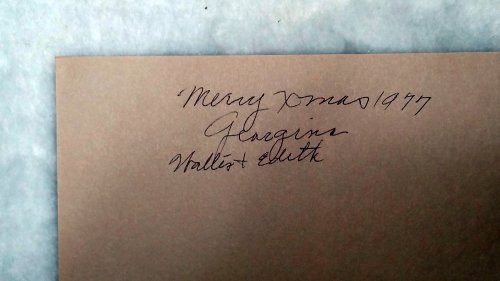 Merry Xmas 1977
Georgina
Wallis + Edith